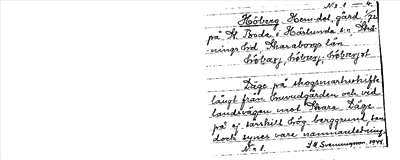 No 1 – 4.
Höberg Hem.del, gård 1/72
på St. Bode i Härlunda sn, Skå-
nings hd, Skaraborgs län
hö̀bærj, hö̀bærj; hö̀bærjət
Läge på skogsmarkskifte
långt från huvudgården och vid
landsvägen mot Skara. Läge
på ej särskilt hög berggrund, som
dock synes vara namnanledning.
No 1. S.A. Svensson. 1945